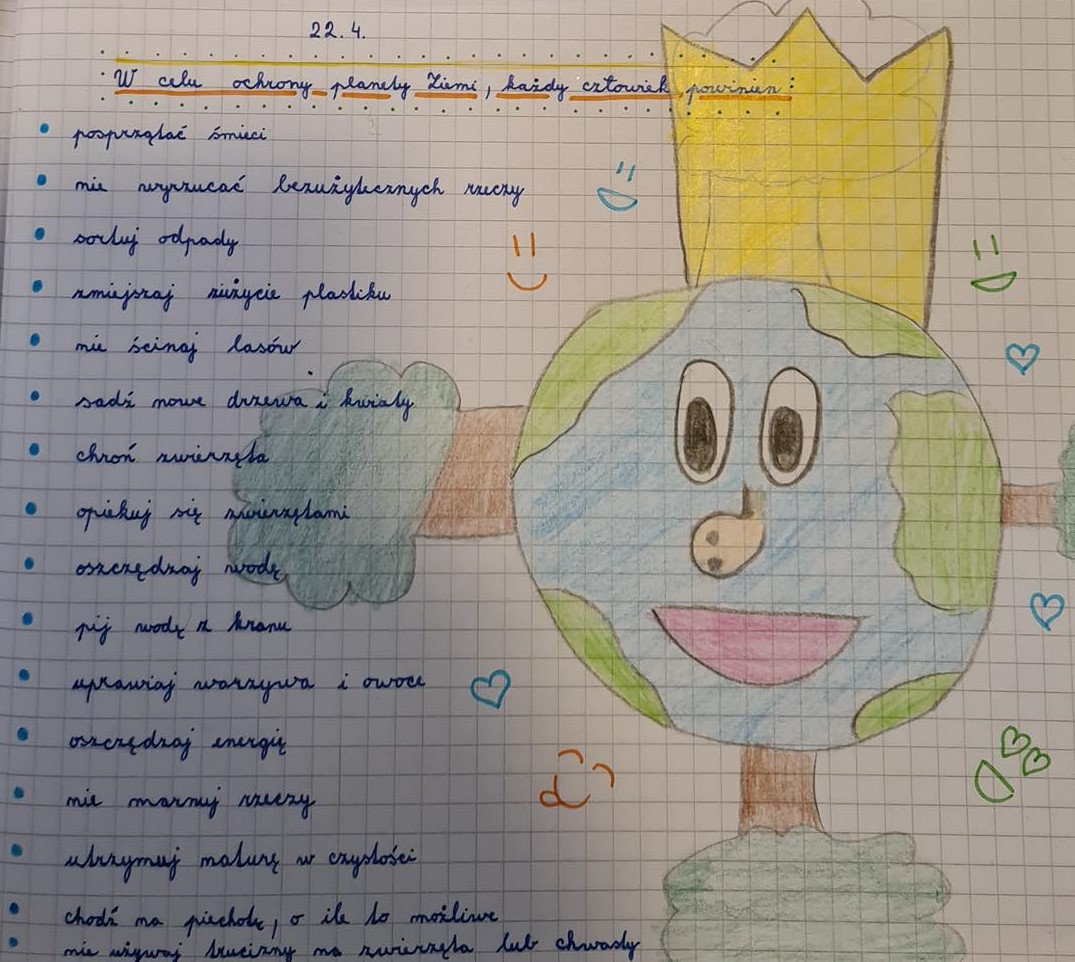 22.4.
W celu ochrony planety Ziemi, każdy człowiek powinien:
posprzątać śmieci
nie wyrzucać bezużytecznych rzeczy
sortuj odpady
zmiejszaj zużycie plastiku
nie ścinaj lasów
sadź nowe drzewa i kwiaty
chroń zwierzęta
opiekuj się zwierzętami
oszczędzaj wodę
pij wodę z kranu
uprawiaj warzywa i owoce
oszczędzaj energię
nie marnuj rzeczy
utrzymuj naturę w czystości
chodź na piechotę, o ile to możliwe
nie używaj trucizny na zwierzęta lub chwasty